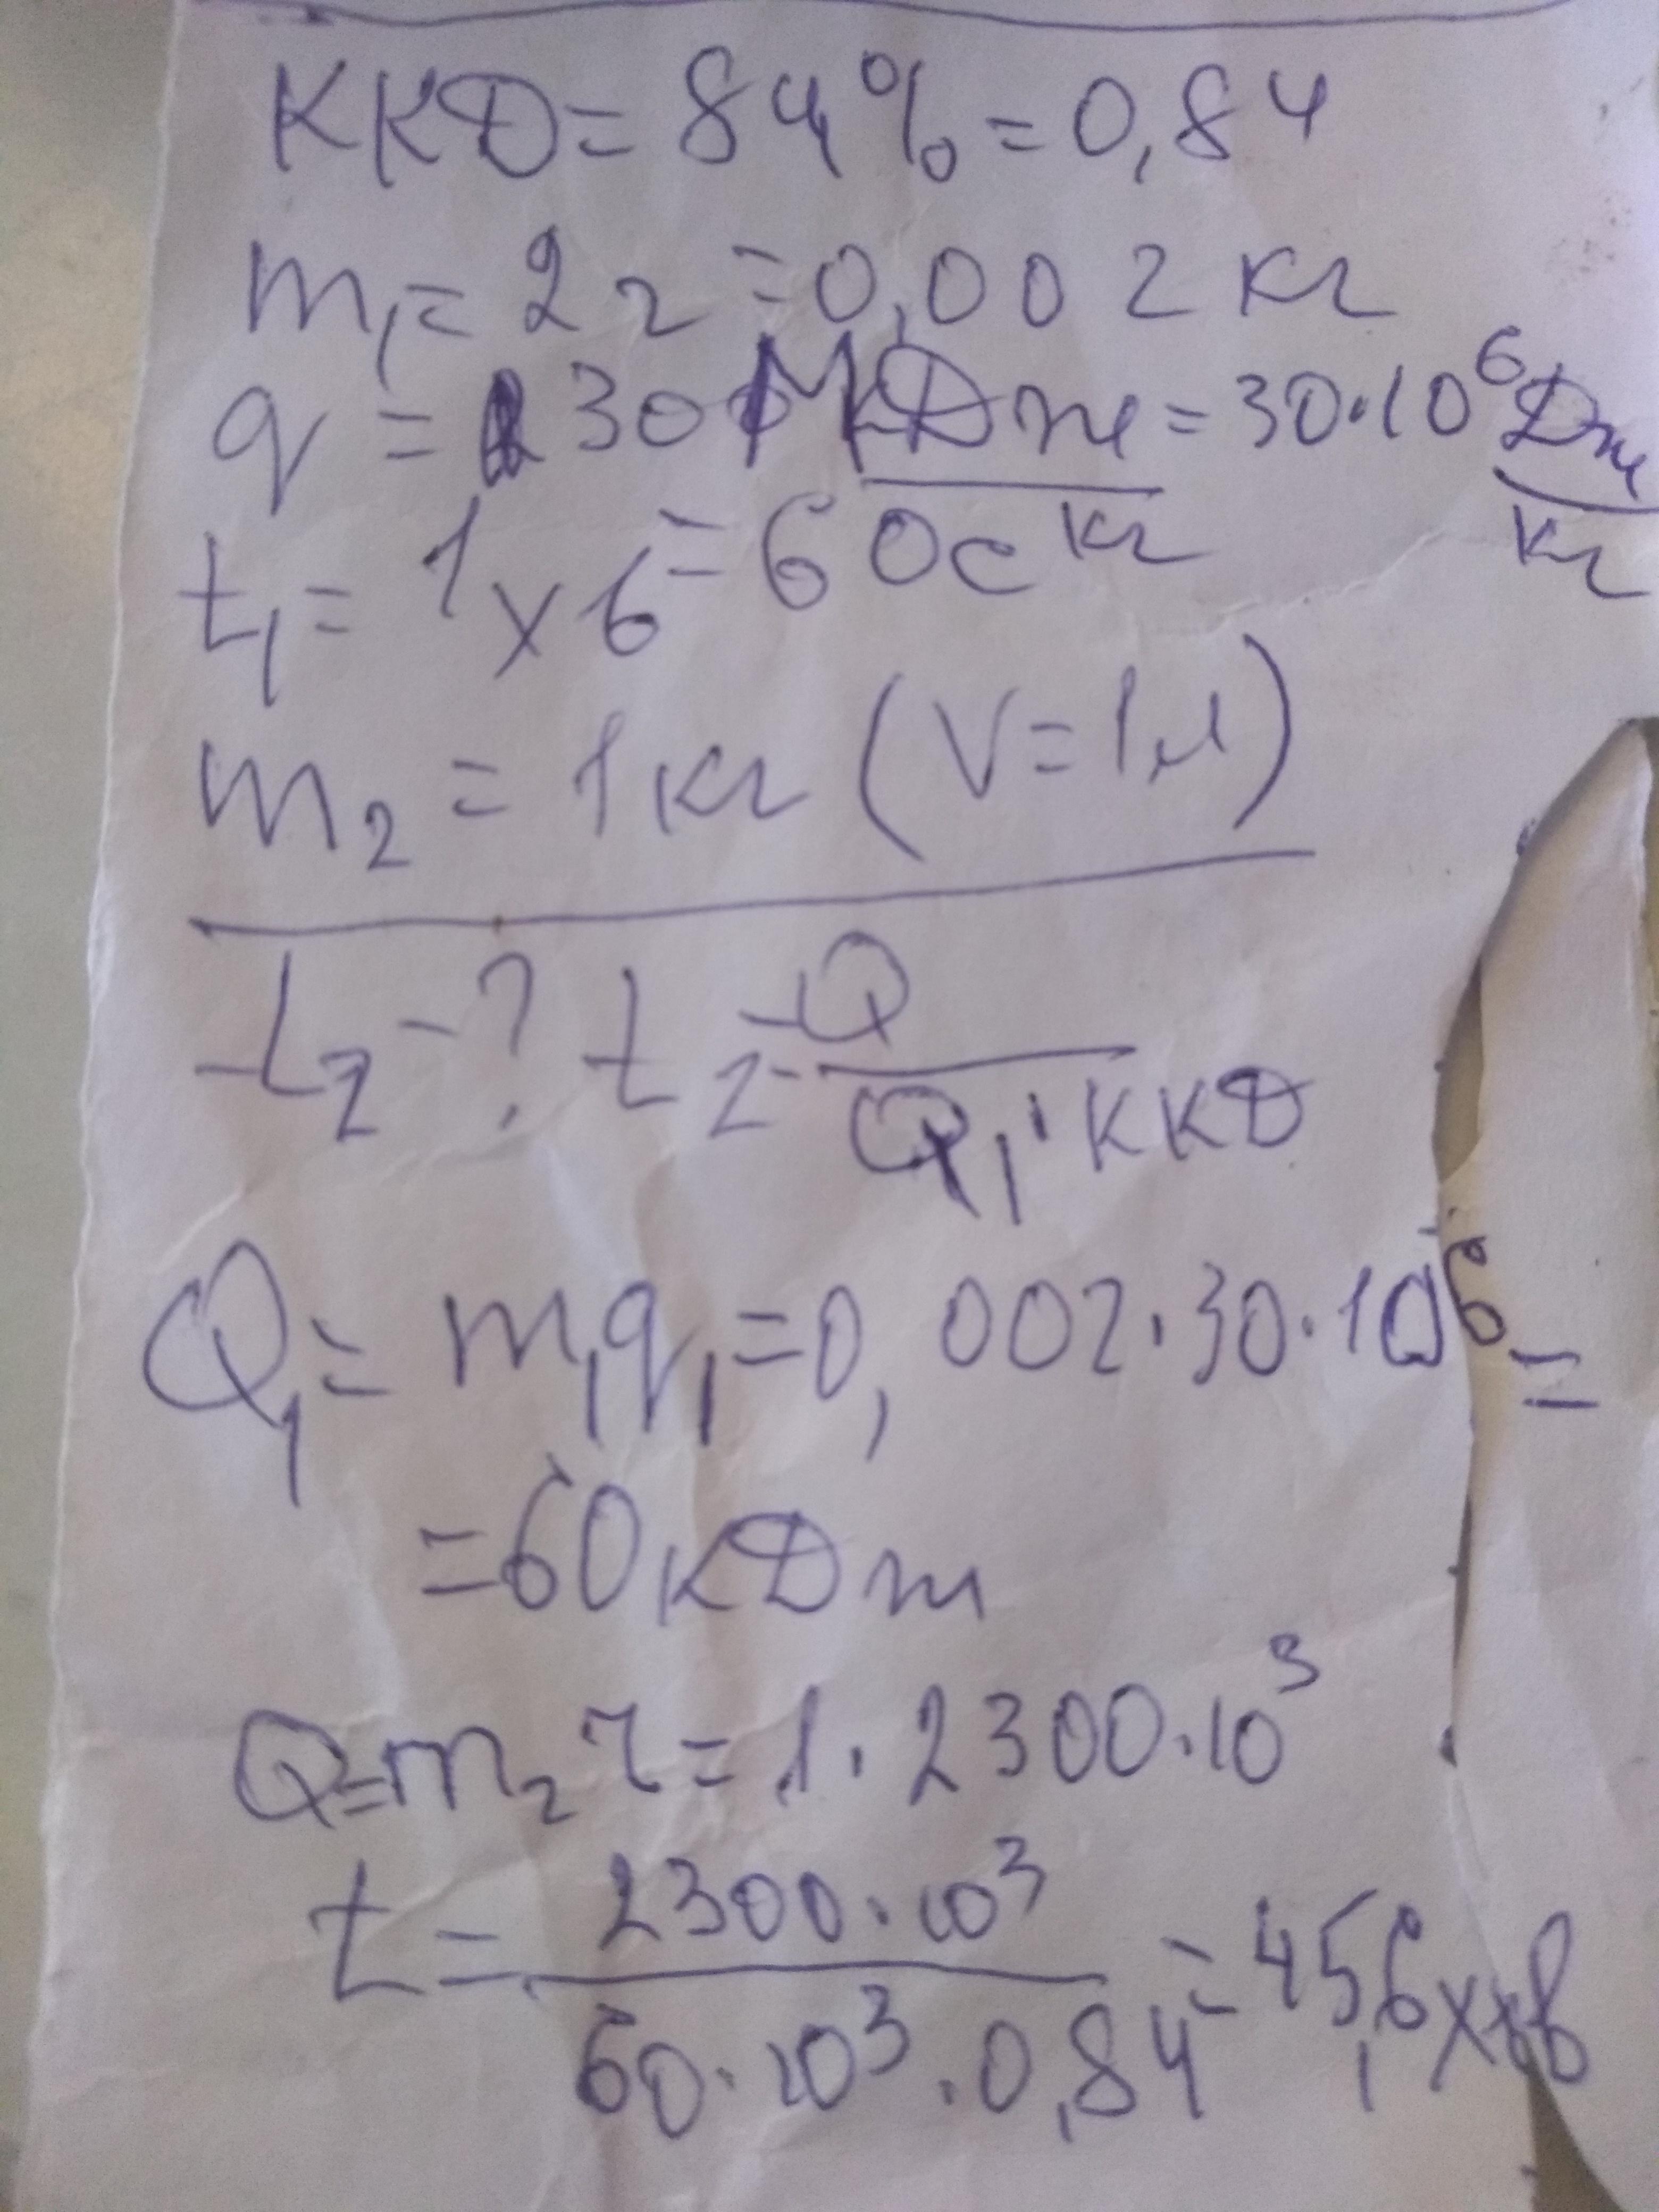 ККД = 84% = 0,84
m₁ = 2 г = 0,002 кг
q = 30 МДж/кг = 30·10⁶ Дж/кг
t₁ = 1 хв = 60с
m₂ = 1 кг (V = 1л)
t₂ - ? t₂ = Q/(Q₁·ККД)
Q₁ = m₁q₁ = 0,002·30·10⁶ =
= 60 кДж
Q = m₂r = 1·2300·10³
t = 2300·10³/(60·10³·0,84) = 45,6 хв